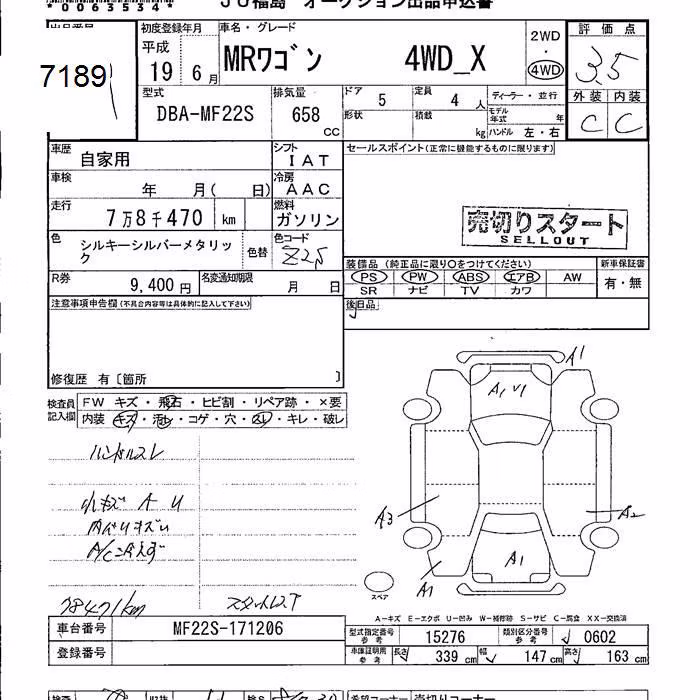 *0063534*
JU福島 オークション出品申込書
出品番号
7189
初度登録年月
平成
19年 6月
車名・グレード
MRワゴン 4WD_X
2WD
・
4WD
評価点
3.5
外装 内装
C C
型式
DBA-MF22S
排気量
658
CC
ドア 5
定員 4 人
ディーラー・並行
形状
積載 kg
モデル年式 年
ハンドル 左・右
車歴 自家用
シフト IAT
車検 年 月( 日)
冷房 AAC
走行 7万8千470 km
燃料 ガソリン
色 シルキーシルバーメタリック
色替
色コード Z2S
R券 9,400円
名変通知期限 月 日
セールスポイント(正常に機能するものに限ります)
売切りスタート
SELLOUT
装備品(純正品に限り○をつけてください)
新車保証書
PS PW ABS エアB AW
SR ナビ TV カワ
有・無
後日品
注意事項申告欄(不具合内容等は具体的に記入して下さい)
修復歴 有〔箇所 〕
検査員記入欄
FW キズ・飛石・ヒビ割・リペア跡・×要
内装 キズ・汚レ・コゲ・穴・スレ・キレ・破レ
ハンドルスレ
小キズ A U
内ハリキズ
78471km
A1
A1 U1
A3
A2
A1
A1
スペア
A-キズ E-エクボ U-凹み W-補修跡 S-サビ C-腐食 XX-交換済
車台番号 MF22S-171206
登録番号
型式指定番号 参考 15276
類別区分番号 参考 0602
車庫証明用 参考 長さ 339 cm 幅 147 cm 高さ 163 cm
希望コーナー 売切りコーナー